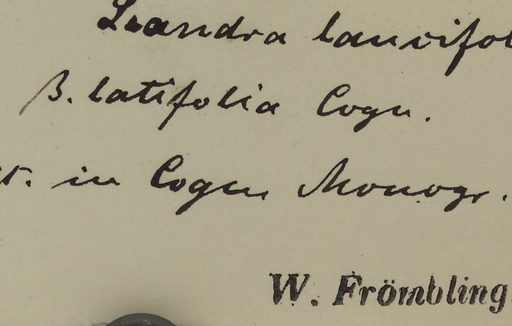 Leandra lancifol
β. latifolia Cogn.
t. in Cogn Monogr.
W. Frömbling